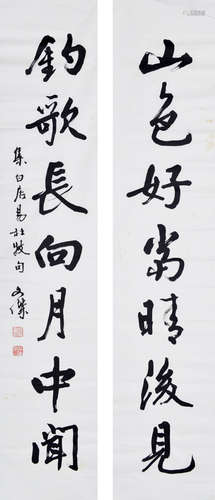 山色好當晴後見
釣歌長向月中聞
集白居易杜牧句 文傑